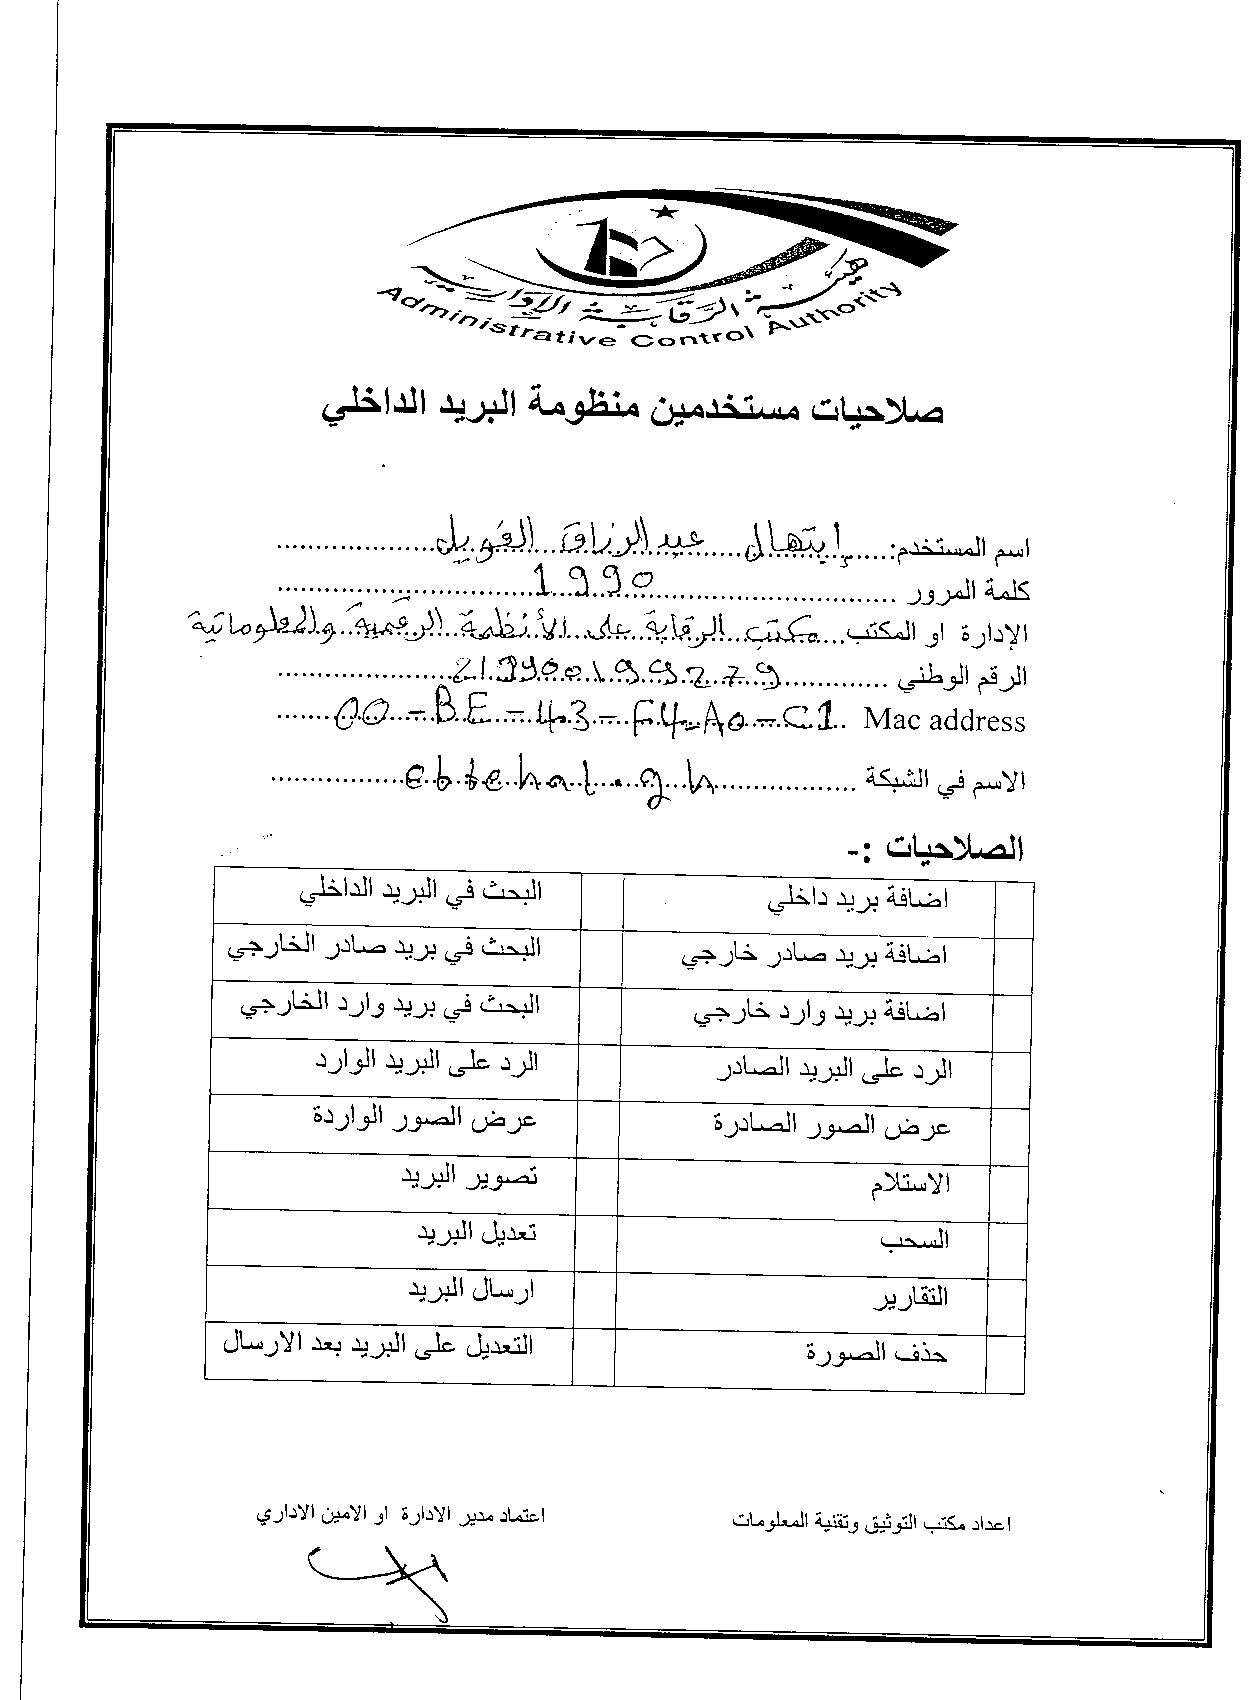 هيئة الرقابة الإدارية
Administrative Control Authority
صلاحيات مستخدمين منظومة البريد الداخلي
اسم المستخدم: إبتهال عبد الرزاق الغويل
كلمة المرور 1990
الإدارة او المكتب مكتب الرقابة على الأنظمة الرقمية والمعلوماتية
الرقم الوطني 219900199279
Mac address 00-BE-43-F4-A0-C1
الاسم في الشبكة ebtehal.gh
الصلاحيات :-
اضافة بريد داخلي البحث في البريد الداخلي
اضافة بريد صادر خارجي البحث في بريد صادر الخارجي
اضافة بريد وارد خارجي البحث في بريد وارد الخارجي
الرد على البريد الصادر الرد على البريد الوارد
عرض الصور الصادرة عرض الصور الواردة
الاستلام تصوير البريد
السحب تعديل البريد
التقارير ارسال البريد
حذف الصورة التعديل على البريد بعد الارسال
اعداد مكتب التوثيق وتقنية المعلومات اعتماد مدير الادارة او الامين الاداري